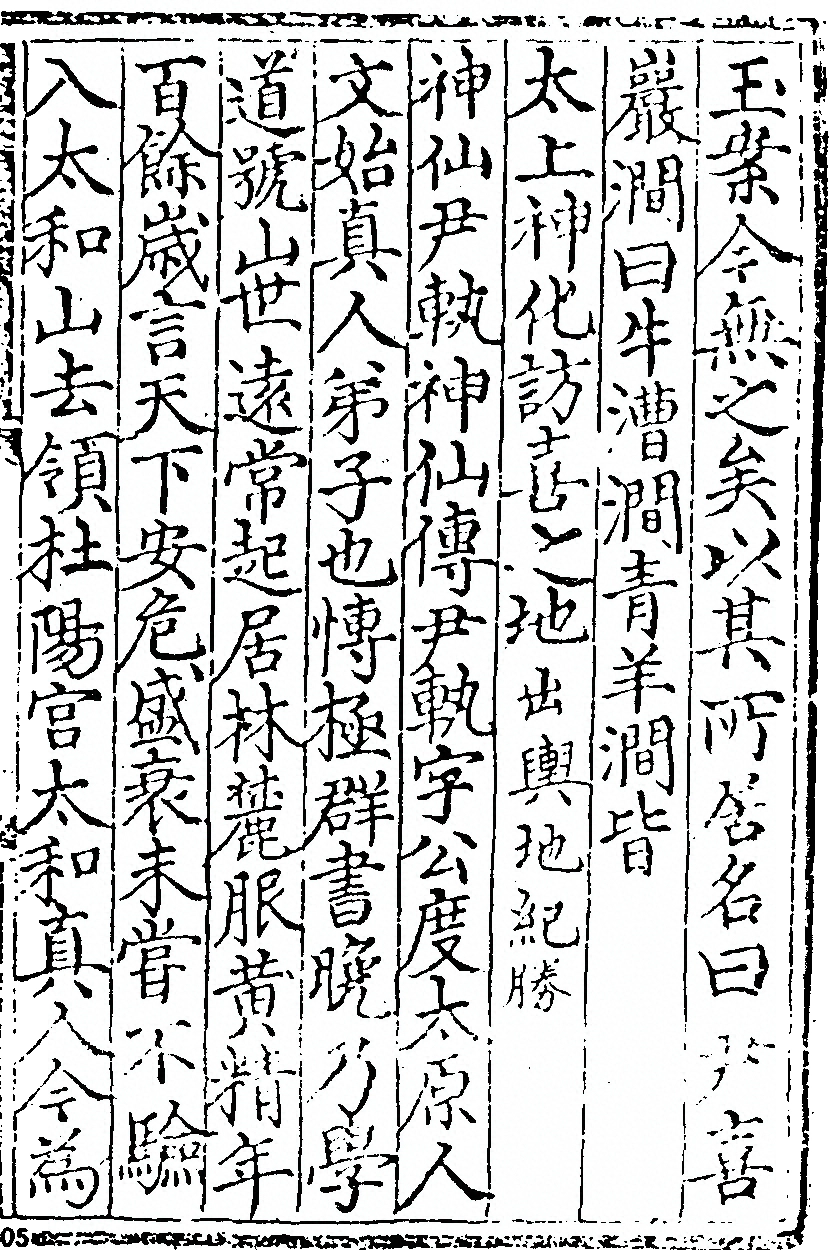 玉案今無之矣以其所居名曰尹喜
巖澗曰牛漕澗青羊澗皆
太上神化訪喜之地出輿地紀勝
神仙尹軌神仙傳尹軌字公度太原人
文始真人弟子也愽極群書晚乃學
道號山世遠常起居林麓服黄精年
百餘歲言天下安危盛衰未嘗不驗
入太和山去領杜陽宮太和真人今為
05